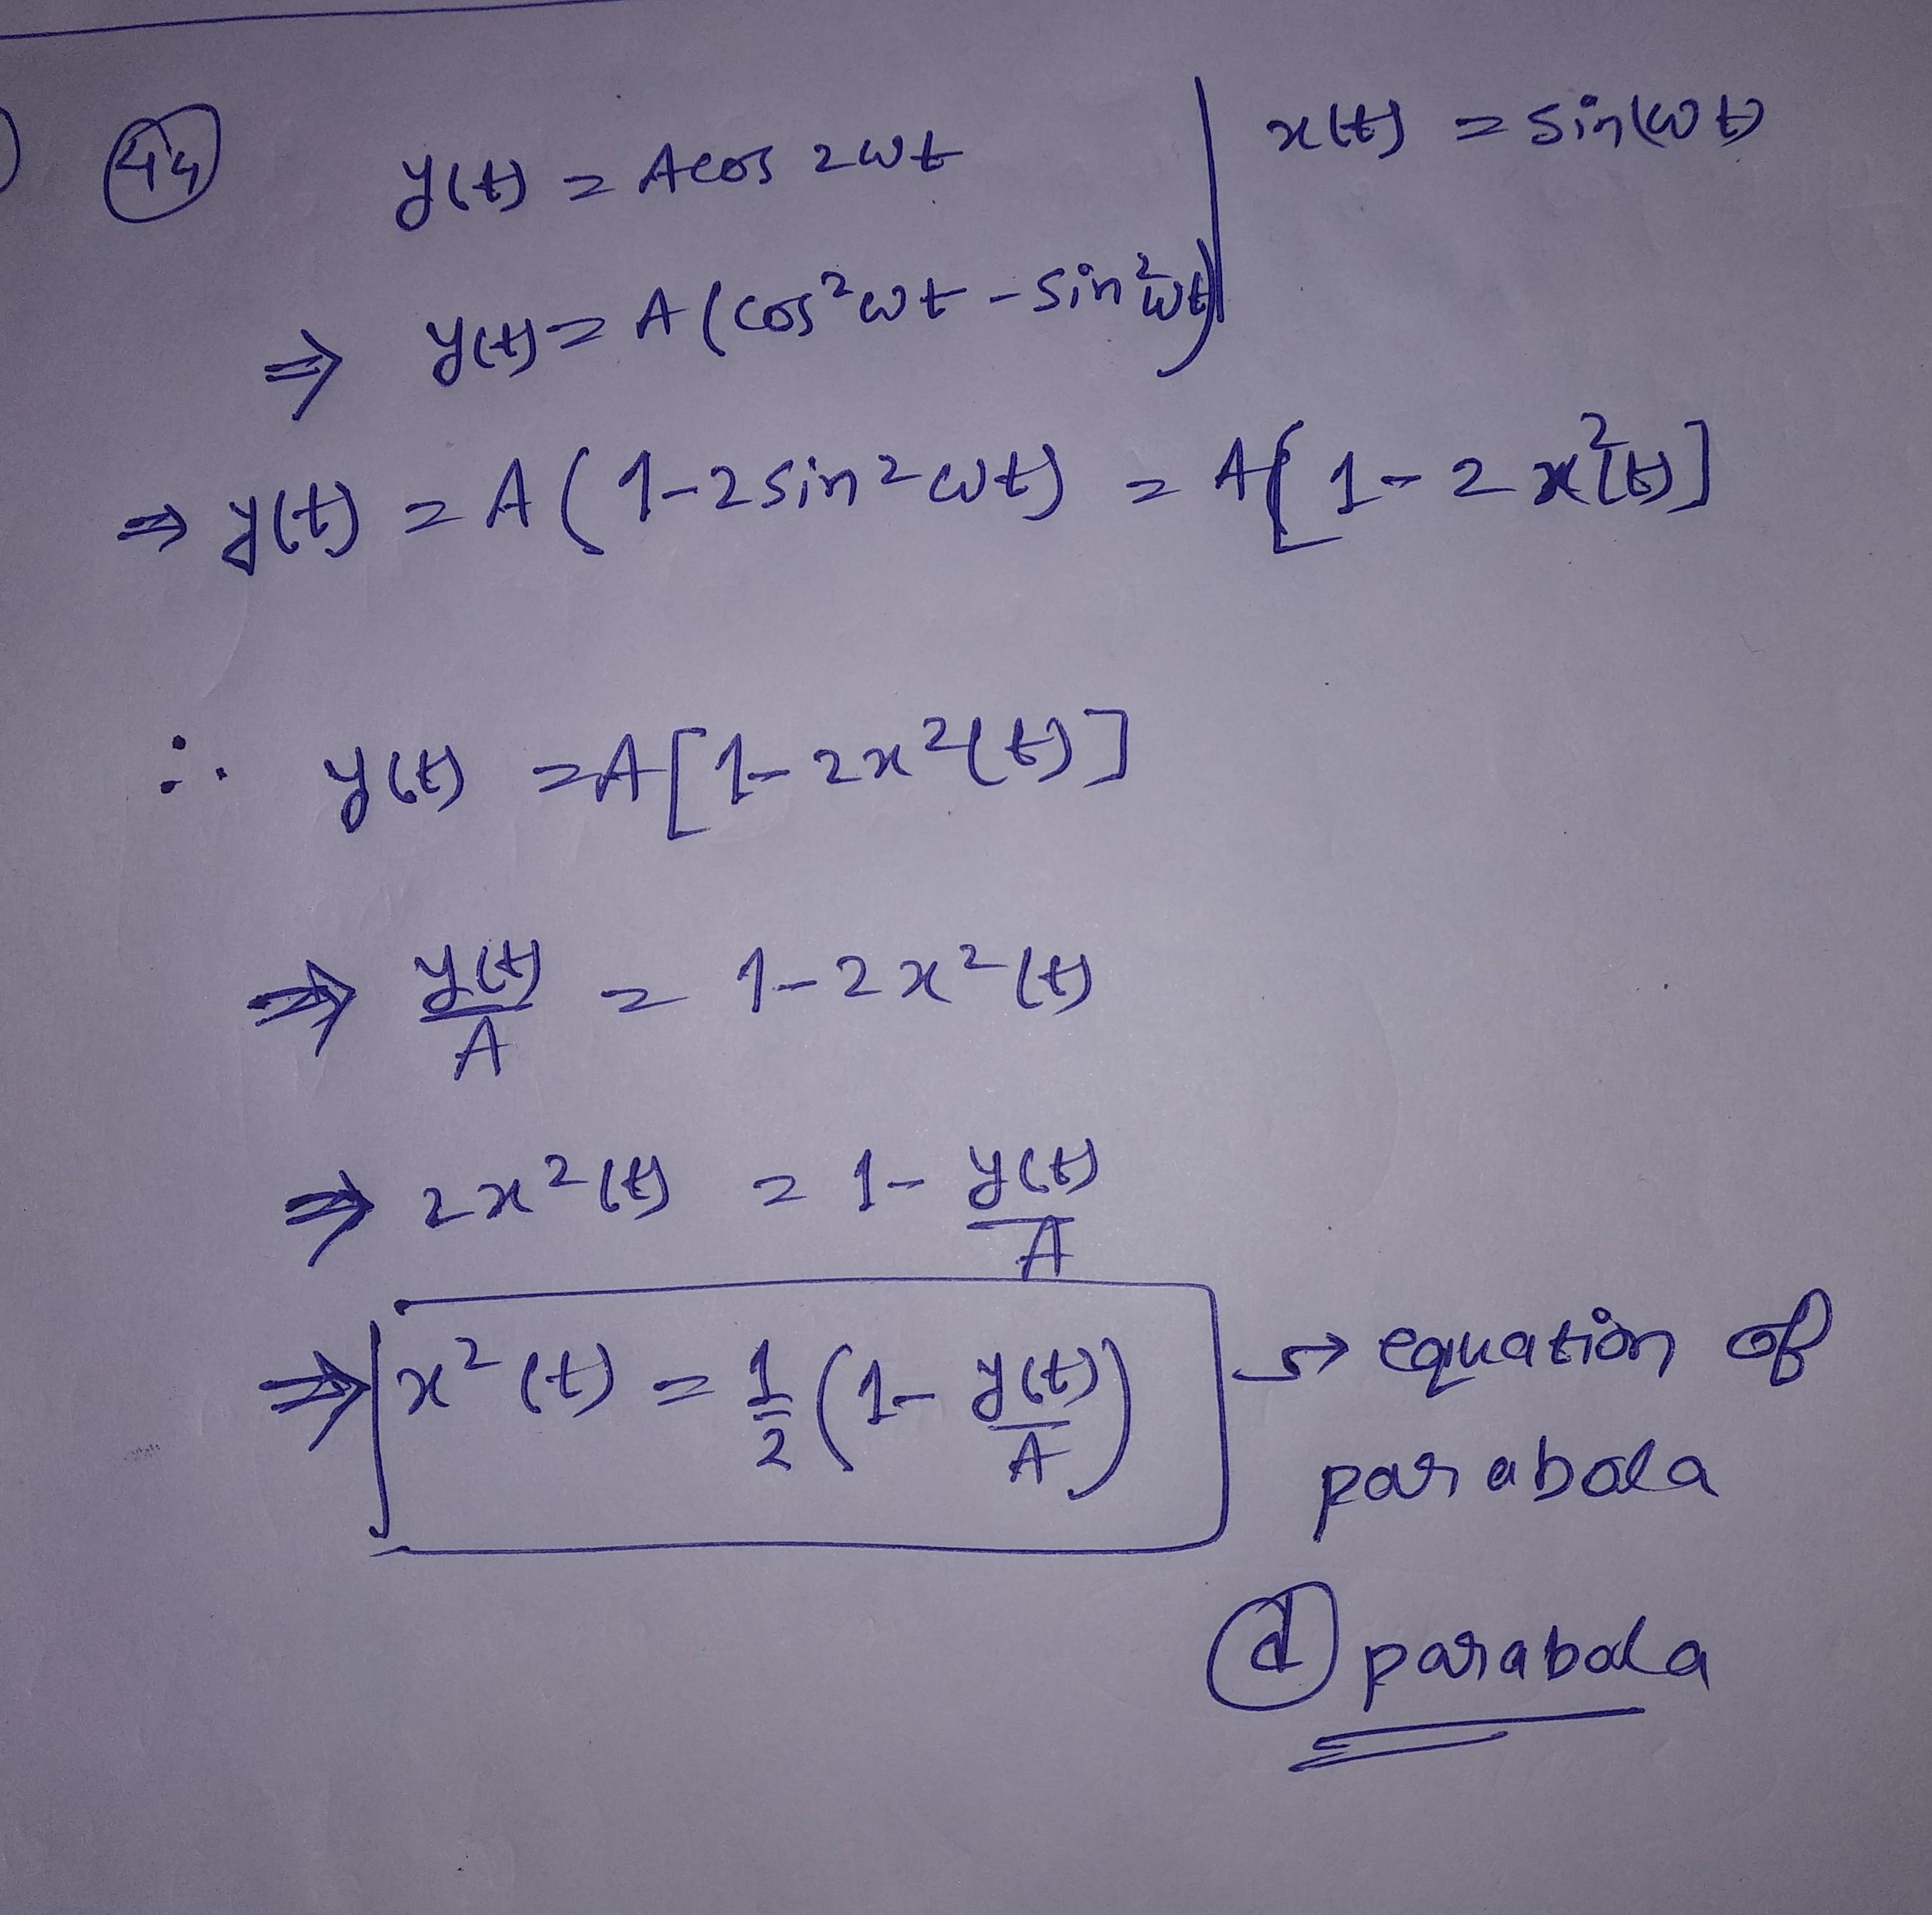 44
y(t) = Acos 2ωt | x(t) = sin(ωt)
⇒ y(t) = A(cos²ωt - sin²ωt)
⇒ y(t) = A(1-2sin²ωt) = A[1-2x²(t)]
∴ y(t) = A[1-2x²(t)]
⇒ y(t)/A = 1-2x²(t)
⇒ 2x²(t) = 1- y(t)/A
⇒ x²(t) = 1/2 (1- y(t)/A) → equation of
parabola
(d) parabola